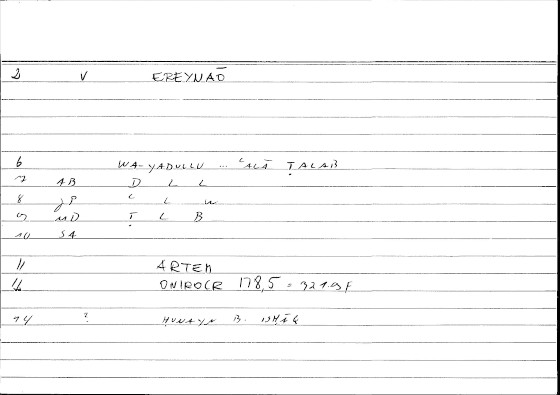 2 V EREYNĀD
6 WA-YADULLU ... ʿALĀ ṬALAB
7 AB D L L
8 JP ʿ L W
9 MD Ṭ L B
10 SA
11 ARTEM
12 ONIROCR 178,5 = 321.9F
14 ? ḤUNAYN B. ISḤĀQ